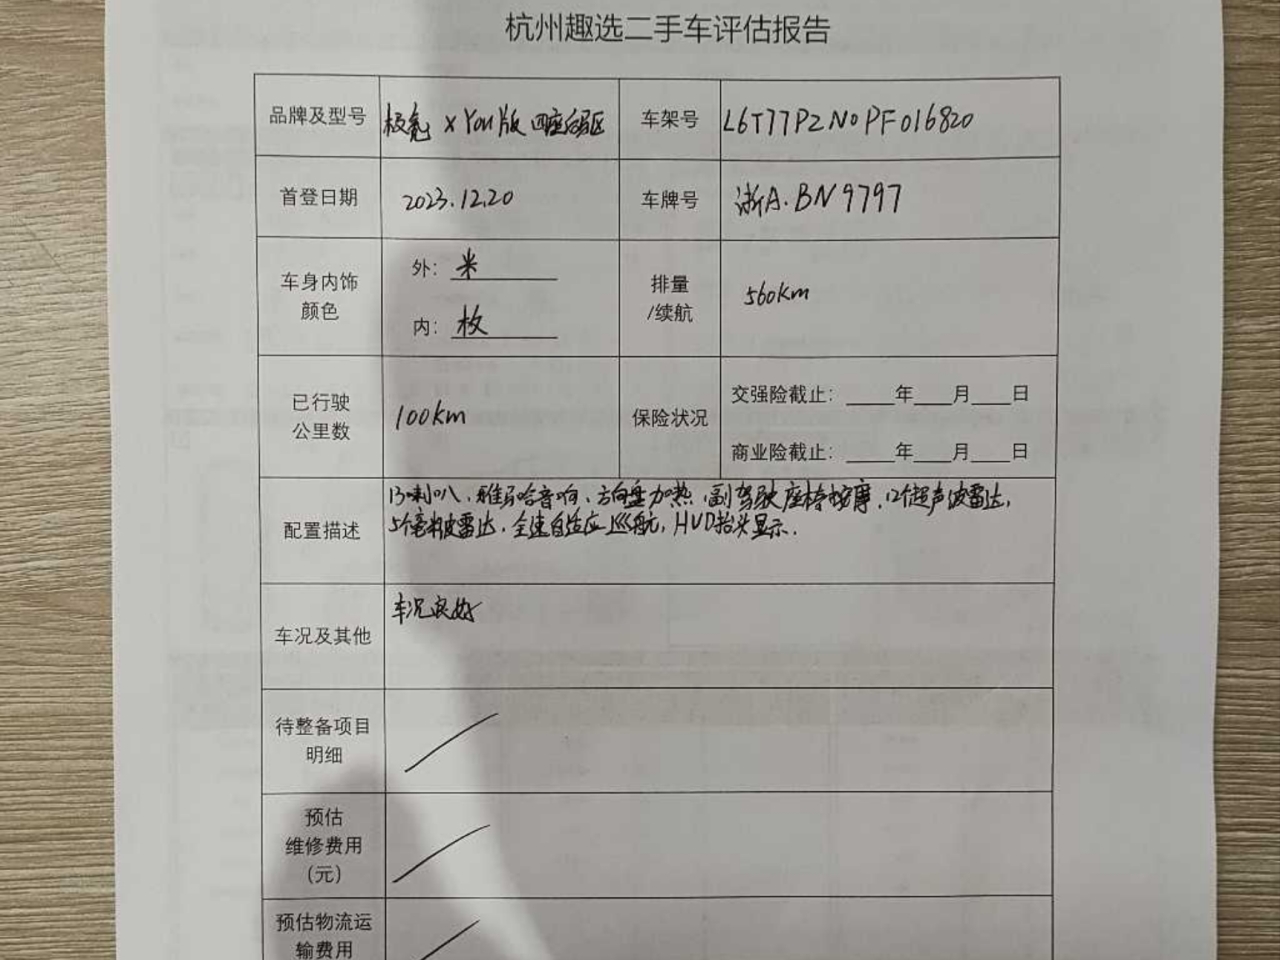 杭州趣选二手车评估报告
品牌及型号 极氪 X You版 四座后驱 车架号 L6T77P2N0PF016820
首登日期 2023.12.20 车牌号 浙A.BN9797
车身内饰
颜色
外: 米
内: 枚
排量
/续航
560km
已行驶
公里数
100km
保险状况
交强险截止: 年 月 日
商业险截止: 年 月 日
配置描述
13喇叭、雅马哈音响、方向盘加热、副驾驶座椅按摩、12个超声波雷达,
5个毫米波雷达、全速自适应巡航, HUD抬头显示.
车况及其他
车况良好
待整备项目
明细
预估
维修费用
(元)
预估物流运
输费用